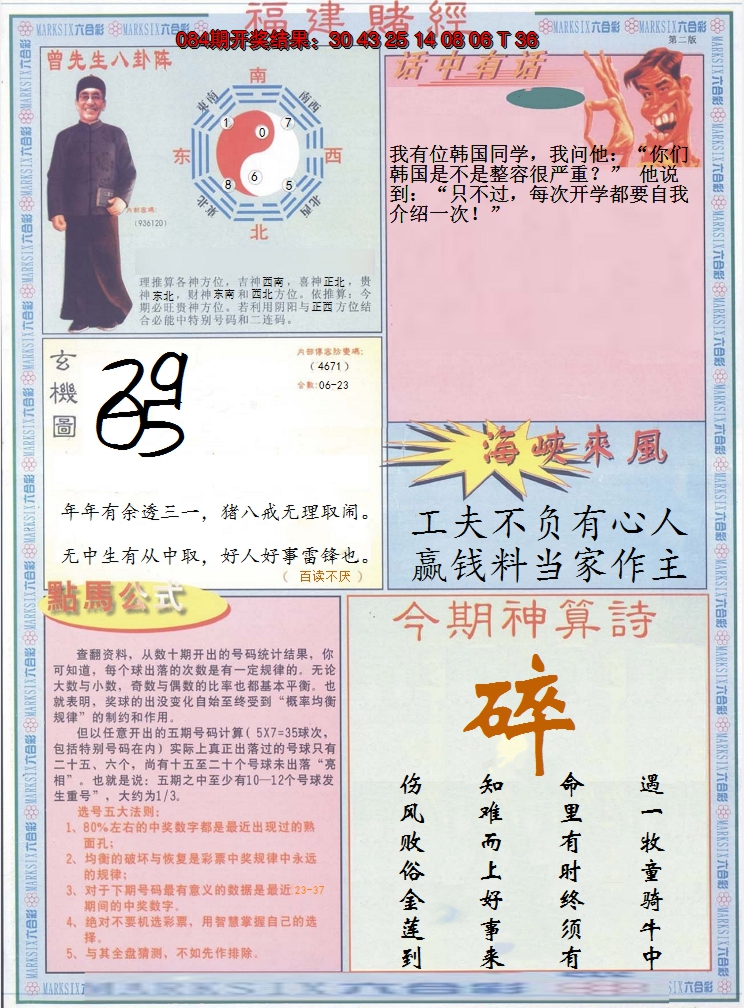 福建賭經
084期开奖结果：30 43 25 14 08 06 T 36
第二版
MARKSIX六合彩
曾先生八卦阵
南
東南
南西
1
0
7
东
西
8
6
5
東北
北西
北
內部密碼:
(936120)
理推算各神方位，吉神西南，喜神正北，贵
神东北，财神东南和西北方位。依推算：今
期必旺贵神方位。若利用阴阳与正西方位结
合必能中特别号码和二连码。
话中有话
我有位韩国同学，我问他：“你们
韩国是不是整容很严重？” 他说
到：“只不过，每次开学都要自我
介绍一次！”
玄機圖
29
05
(4671)
合数:06-23
年年有余透三一，猪八戒无理取闹。
无中生有从中取，好人好事雷锋也。
（ 百读不厌 ）
海峽來風
工夫不负有心人
赢钱料当家作主
點馬公式
查翻资料，从数十期开出的号码统计结果，你
可知道，每个球出落的次数是有一定规律的。无论
大数与小数，奇数与偶数的比率也都基本平衡。也
就表明，奖球的出没变化自始至终受到“概率均衡
规律”的制约和作用。
但以任意开出的五期号码计算( 5X7=35球次，
包括特别号码在内) 实际上真正出落过的号球只有
二十五、六个，尚有十五至二十个号球未出落“亮
相”。也就是说：五期之中至少有10—12个号球发
生重号”，大约为1/3。
选号五大法则:
1、80%左右的中奖数字都是最近出现过的熟
面孔;
2、均衡的破坏与恢复是彩票中奖规律中永远
的规律;
3、对于下期号码最有意义的数据是最近23-37
期间的中奖数字。
4、绝对不要机选彩票，用智慧掌握自己的选
择。
5、与其全盘猜测，不如先作排除。
今期神算詩
碎
遇一牧童骑牛中
命里有时终须有
知难而上好事来
伤风败俗金莲到